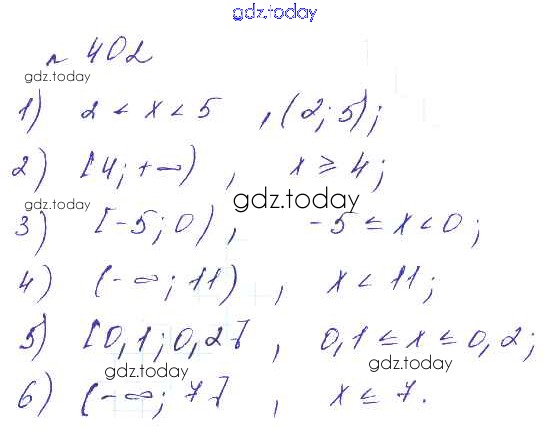 gdz.today
№ 402
gdz.today
1) 2 < x < 5 , (2; 5);
2) [4; +∞) , x ≥ 4;
gdz.today
gdz.today
3) [-5; 0) , -5 ≤ x < 0;
4) (-∞; 11) , x < 11;
5) [0,1; 0,2] , 0,1 ≤ x ≤ 0,2;
gdz.today
gdz.today
6) (-∞; 7] , x ≤ 7.